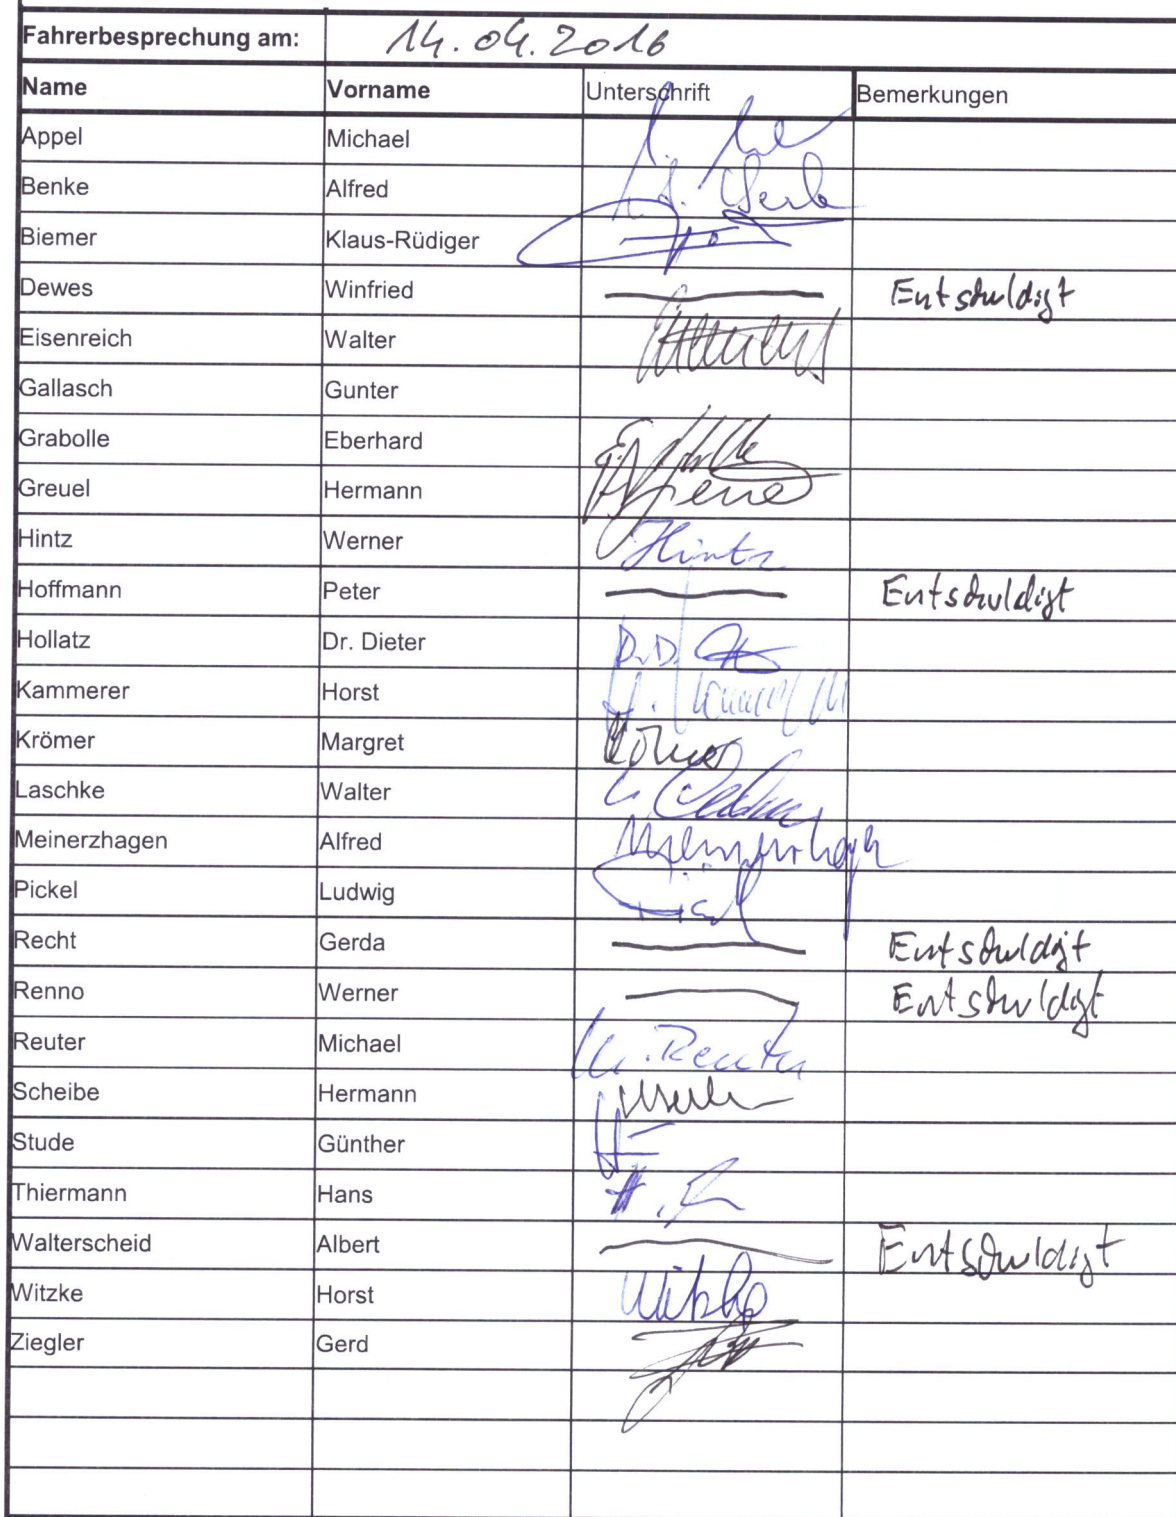 Fahrerbesprechung am: 14.04.2016
Name Vorname Unterschrift Bemerkungen
Appel Michael
Benke Alfred
Biemer Klaus-Rüdiger
Dewes Winfried Entschuldigt
Eisenreich Walter
Gallasch Gunter
Grabolle Eberhard
Greuel Hermann
Hintz Werner Hintz
Hoffmann Peter Entschuldigt
Hollatz Dr. Dieter
Kammerer Horst
Krömer Margret
Laschke Walter
Meinerzhagen Alfred Meinerzhagen
Pickel Ludwig
Recht Gerda Entschuldigt
Renno Werner Entschuldigt
Reuter Michael M. Reuter
Scheibe Hermann
Stude Günther
Thiermann Hans
Walterscheid Albert Entschuldigt
Witzke Horst Witzke
Ziegler Gerd